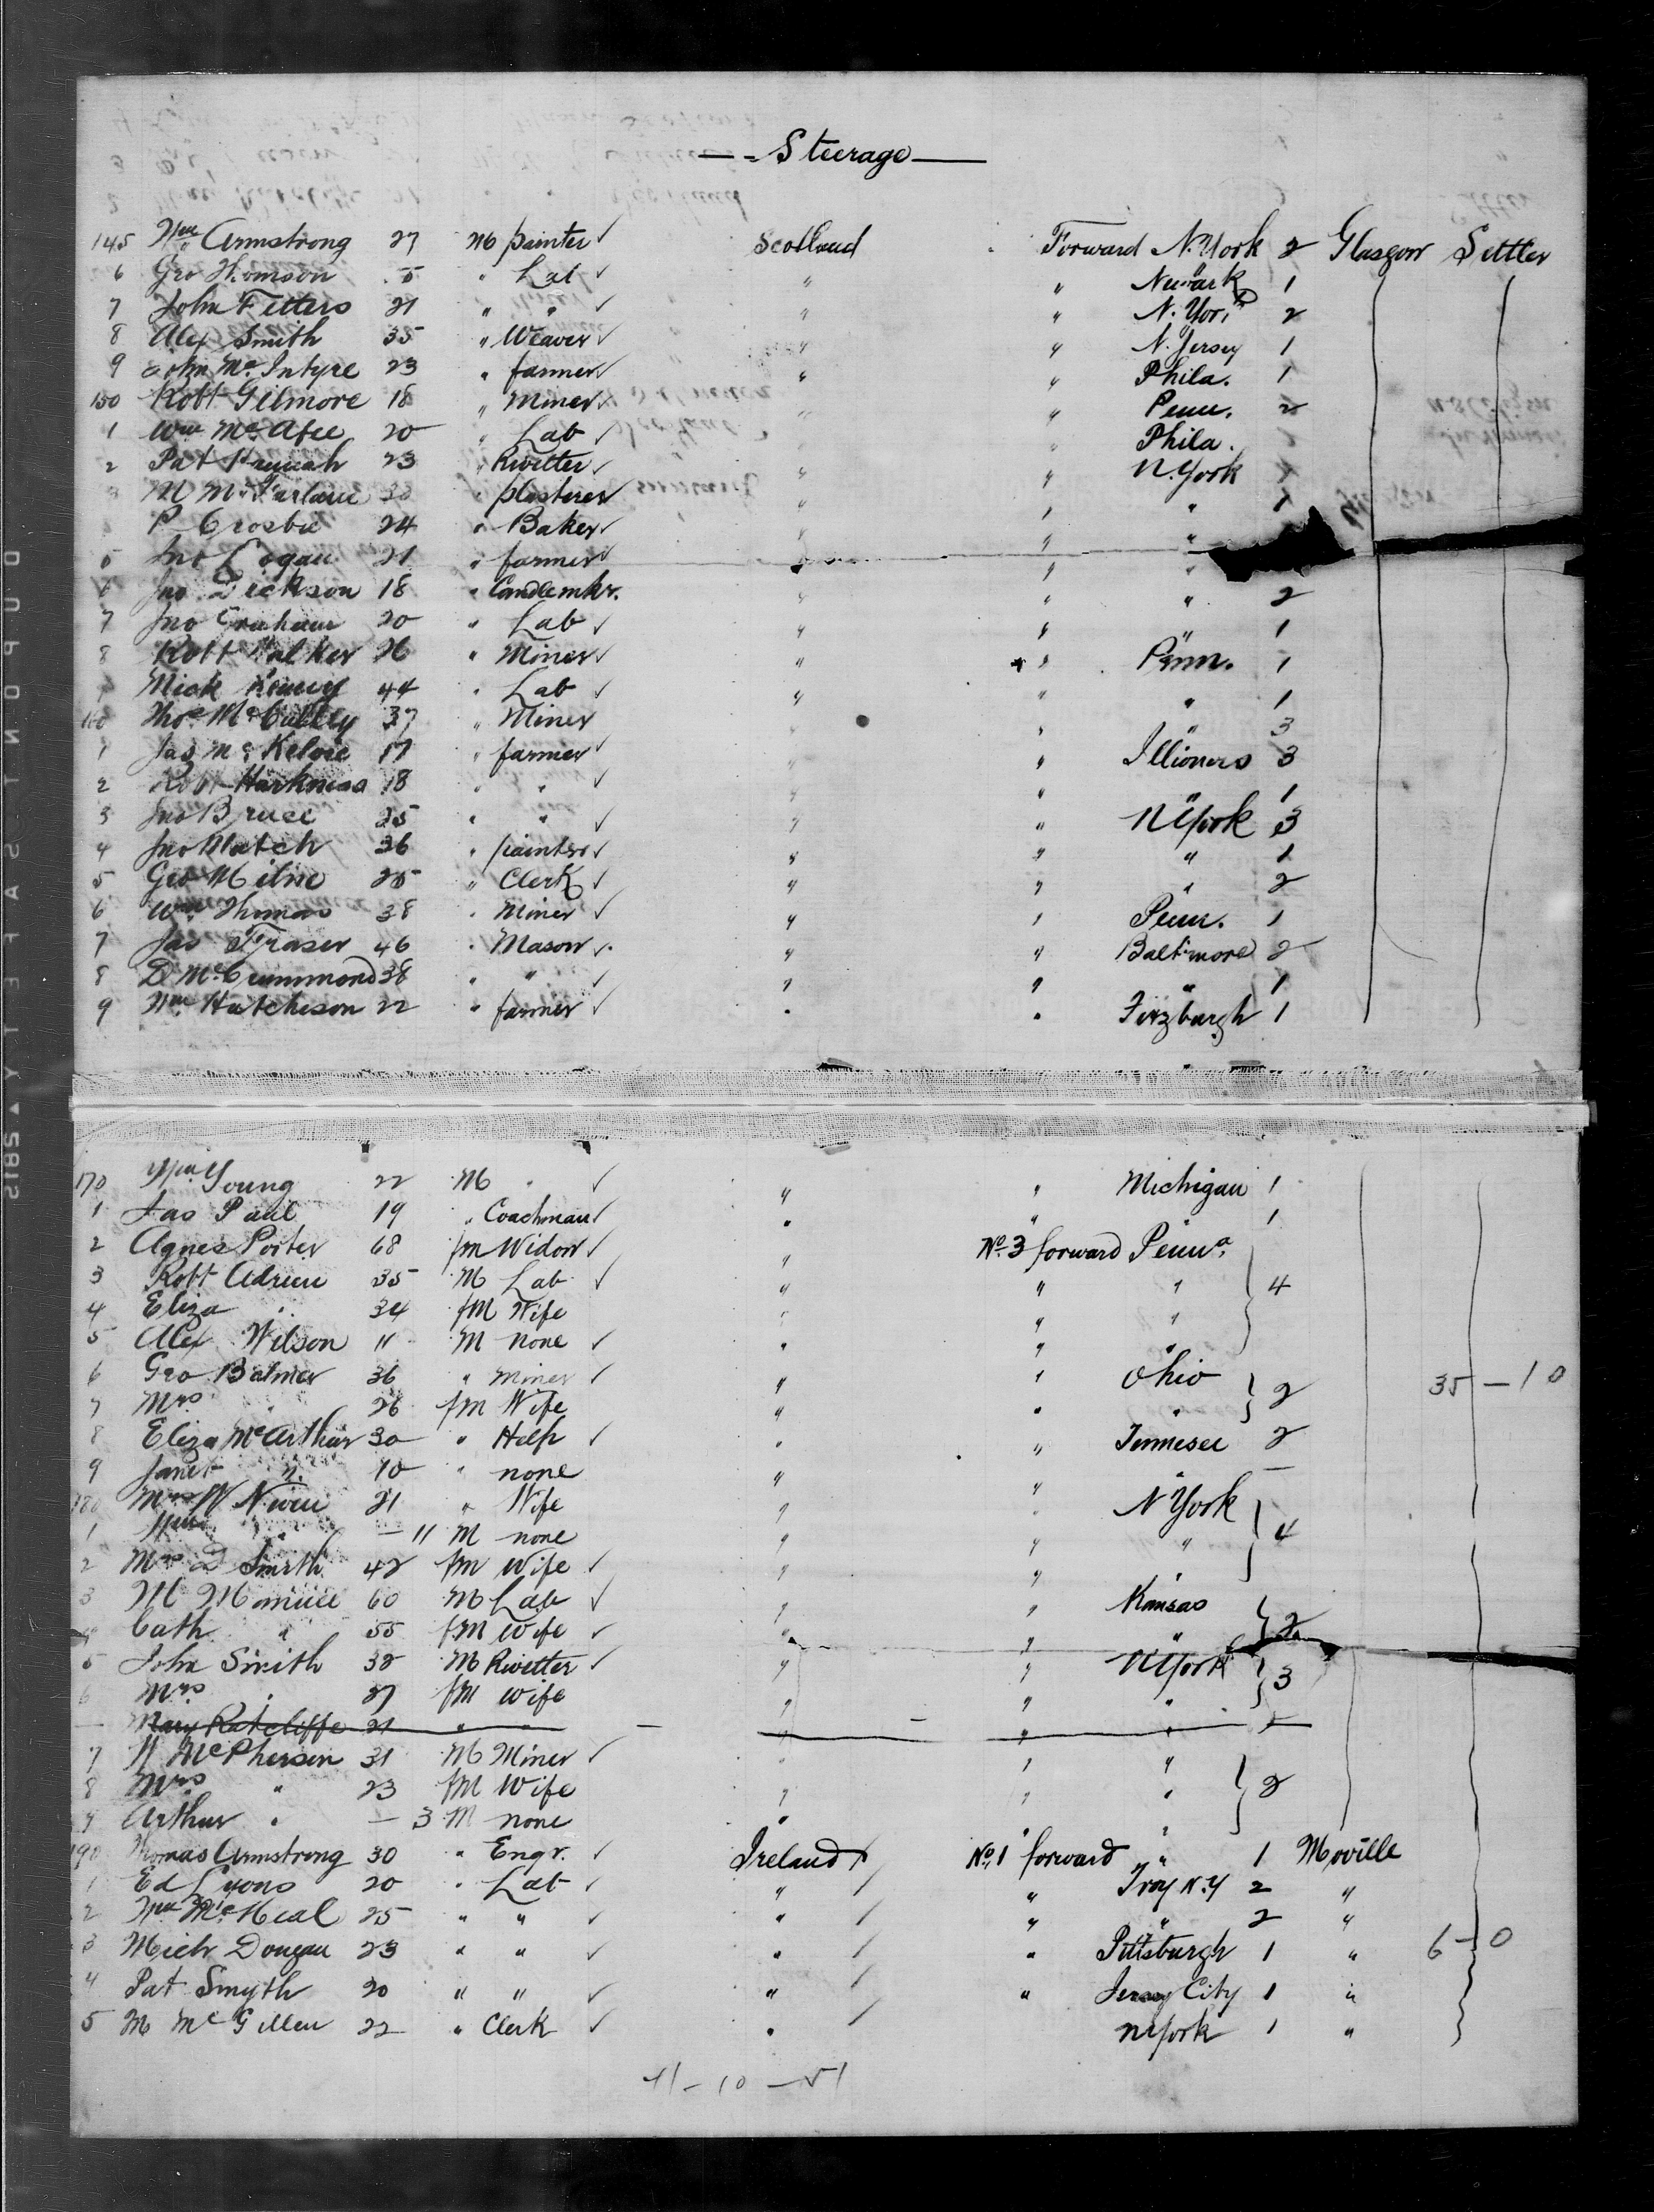 Steerage
145 Wm Armstrong 27 M painter ✓ Scotland Forward N. York 2 Glasgow Settler
6 Geo Thomson " Lab ✓ " " Newark 1
7 John Fetters 21 " " ✓ " " N. York 2
8 Alex Smith 35 " Weaver ✓ " " N. Jersey 1
9 John McIntyre 23 " farmer ✓ " " Phila. 1
150 Robt Gilmore 18 " Miner ✓ " " Penn. 2
1 Wm McAfee 20 " Lab ✓ " " Phila.
2 Pat 23 " Rivetter ✓ " " N. York 1
M McFarlane 30 " plasterer " " "
P Crosbie 24 " Baker ✓ " " "
5 Jno Logan 21 " farmer ✓ " " "
6 Jno Dickson 18 " Candlemkr. " " " 2
7 Jno Graham 20 " Lab ✓ " " " 1
8 Robt Walker 26 " Miner ✓ " " Penn. 1
Mick Kenny 44 " Lab ✓ " " " 1
160 Thos McCulley 37 " Miner " " 3
1 Jas McKelvie 17 " farmer ✓ " " Illioners 3
2 Robt Harkness 18 " " ✓ " " " 1
3 Jno Bruce 25 " " ✓ " " N York 3
4 Jno Match 36 " painter ✓ " " " 1
5 Geo Milne 25 " Clerk ✓ " " " 2
6 Wm Thomas 38 " Miner ✓ " " Penn. 1
7 Jas Fraser 46 " Mason ✓ " " Baltimore 2
8 D McCrummond 38 " " ✓ " " " 1
9 Wm Hutcheson 22 " farmer ✓ " " 1
170 Wm Young 22 M " ✓ " " Michigan 1
1 Jas Paul 19 " Coachman ✓ " " " 1
2 Agnes Porter 68 fm Widow ✓ " No. 3 forward Penna.
3 Robt Adrien 35 M Lab ✓ " " " 4
4 Eliza " 34 fM Wife " " "
5 Alex Wilson 11 M none ✓ " " "
6 Geo Balmer 36 " miner ✓ " " Ohio 35 – 10
7 Mrs " 26 fm Wife " " " 2
8 Eliza McArthur 30 " Help ✓ " " Tennesee 2
9 Janet " 10 " none " " "
180 Mrs W Niven 21 " Wife " " N York
1 Wm " – 11 M none " " " 4
2 Mrs D Smith 42 fm Wife ✓ " " "
3 M 60 M Lab ✓ " " Kansas
4 Cath " 55 fM Wife ✓ " " " 2
5 John Smith 32 M Rivetter ✓ " " N York 3
6 Mrs " 27 fM Wife " " "
– Mary Ratcliffe 21 " " – " – " "
7 McPherson 31 M Miner ✓ " " "
8 Mrs " 23 fM Wife " " " 2
9 Arthur " – 3 M none " " "
190 Thomas Armstrong 30 " Engr. ✓ Ireland No. 1 forward " 1 Moville
1 Ed Lyons 20 " Lab ✓ " " Troy N.Y 2 "
2 Wm McNeal 25 " " ✓ " " " 2 "
3 Mich Dougan 23 " " ✓ " " Pittsburgh 1 " 6 – 0
4 Pat Smyth 20 " " ✓ " " Jersey City 1 "
5 M McGillen 22 " Clerk ✓ " N York 1 "
41 – 10 – 51